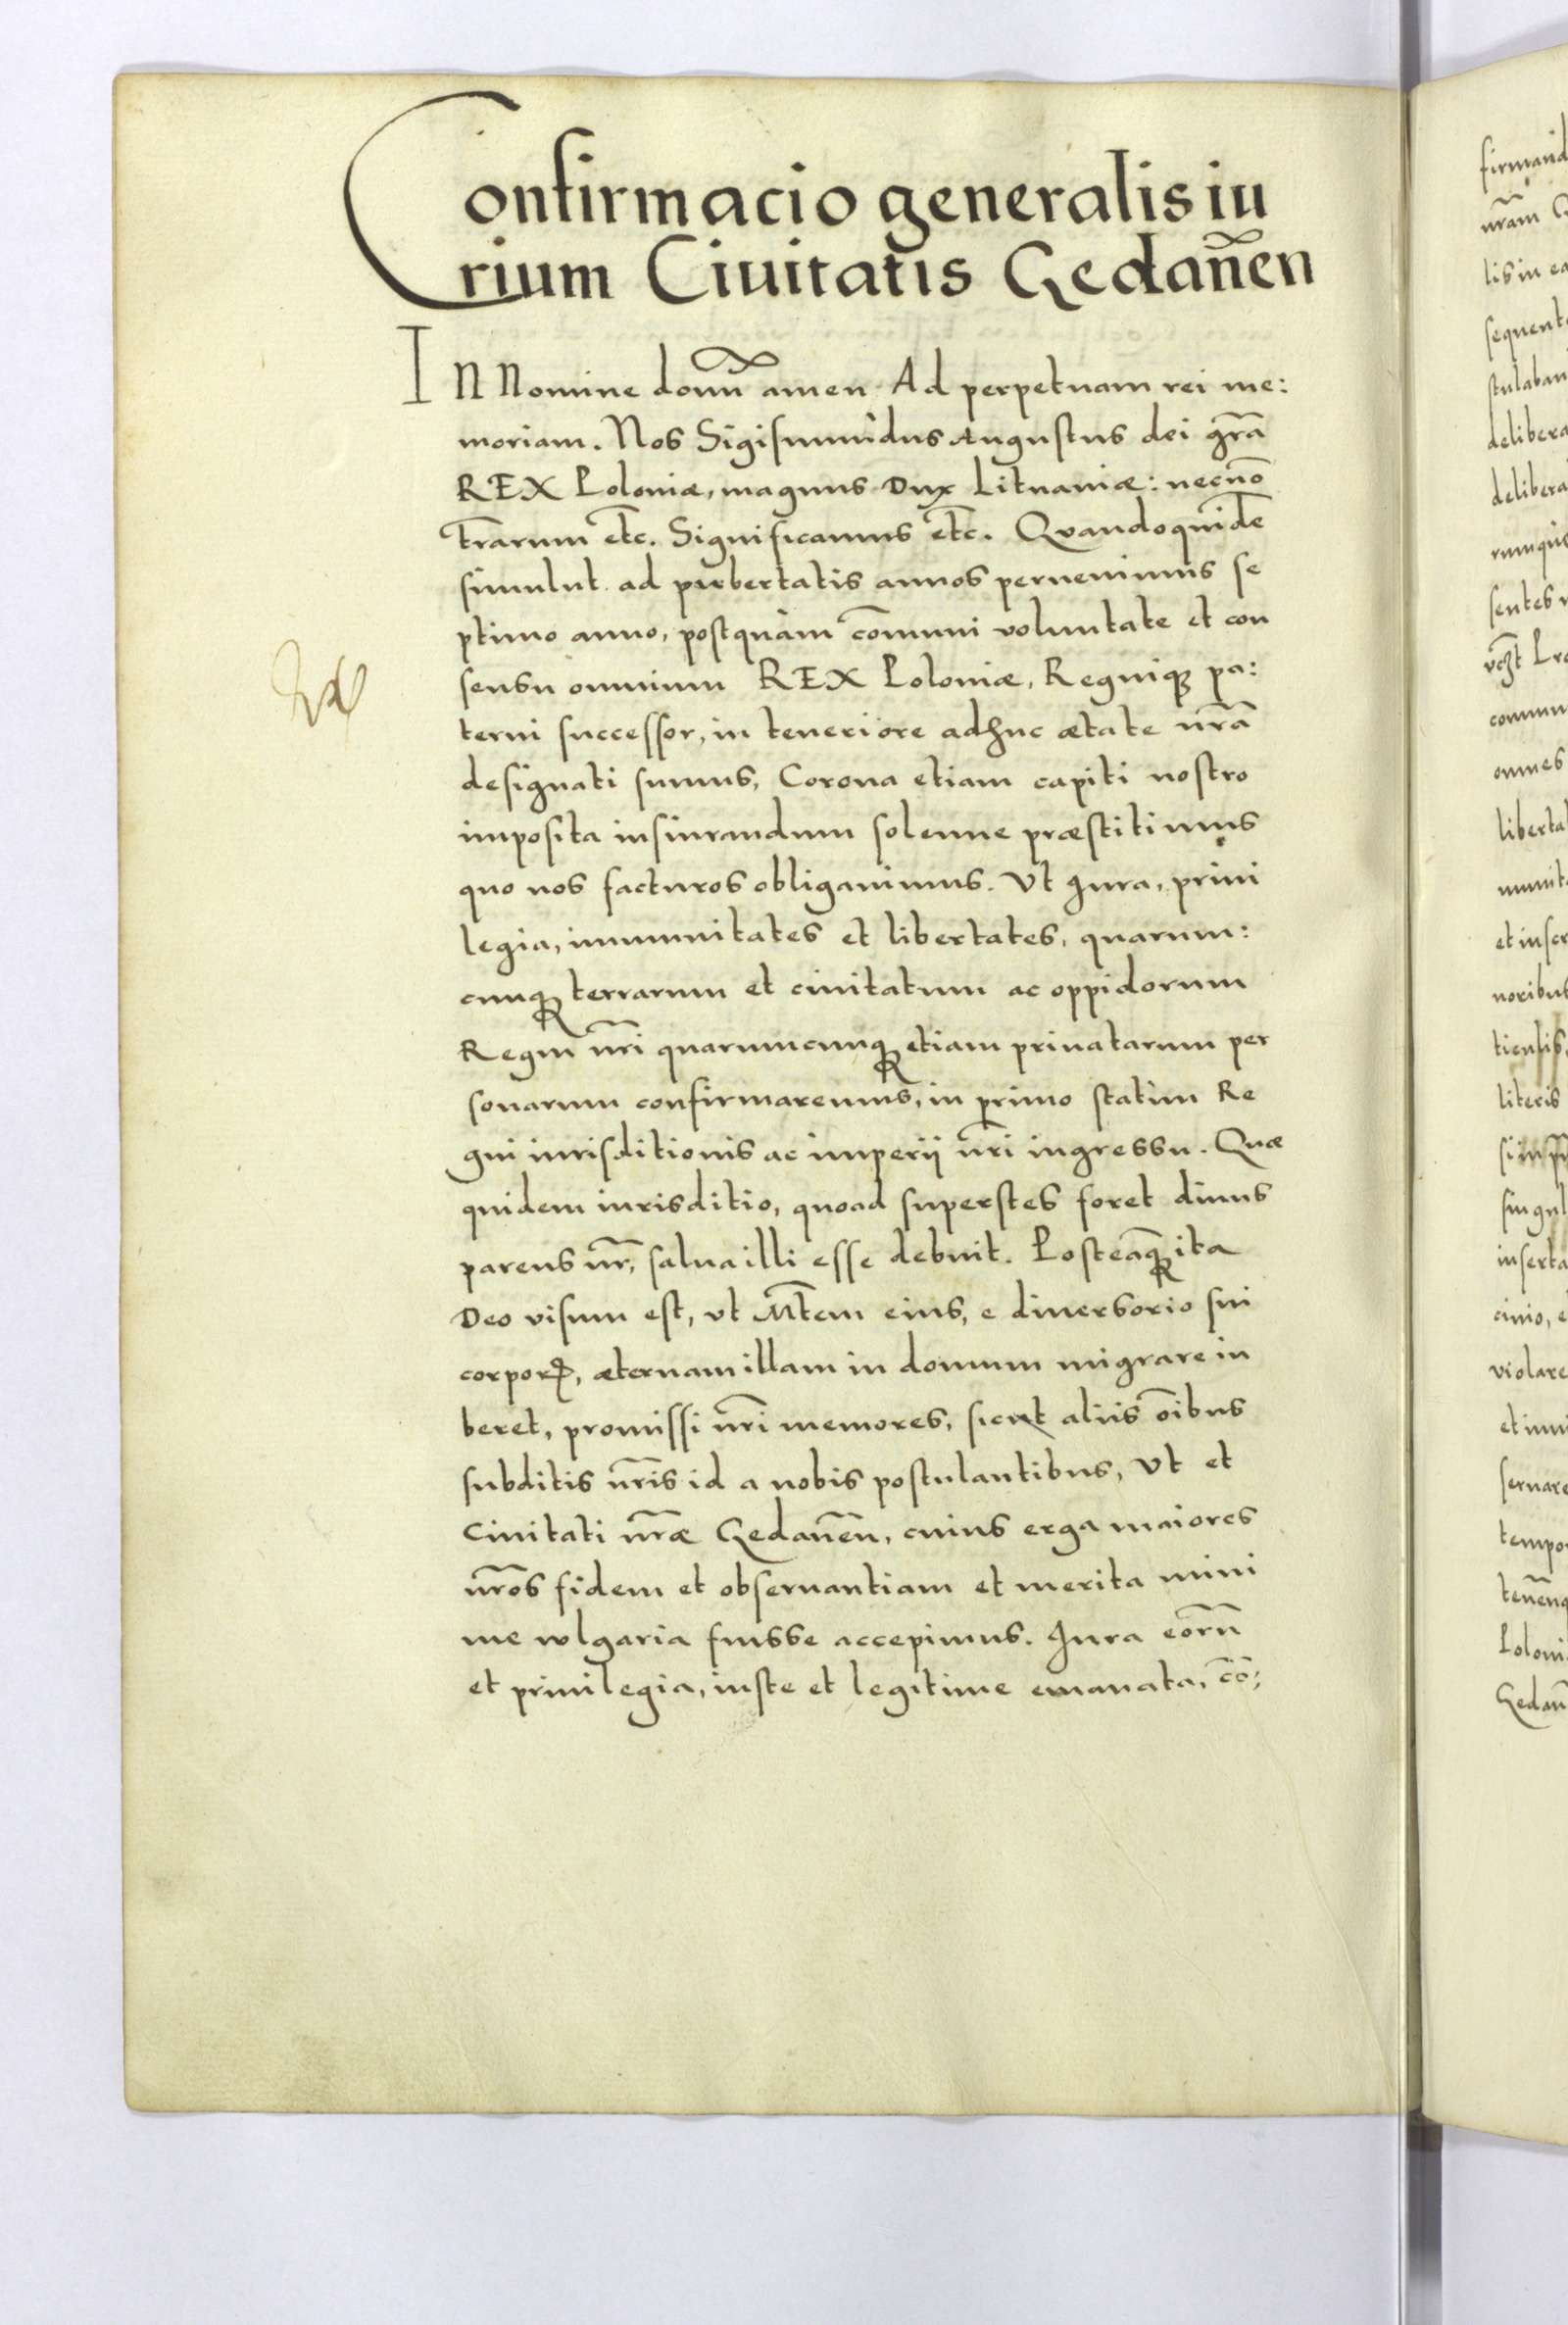 Confirmacio generalis iu
rium Ciuitatis Gedan̄en
IN Nomine domī amen Ad perpetuam rei me:
moriam. Nos Sigismūdus Augustus dei gr̄a
REX Poloniæ, magnus Dux Lituaniæ: necnō
tr̄arum etc̄. Significamus etc̄. Quandoquidē
simulut ad pubertatis annos peruenimus se
ptimo anno, postquàm cōmuni voluntate et con
sensu omnium REX Poloniæ, Regniqꝫ pa:
terni successor, in teneriore adhuc ætate nr̄a
designati sumus, Corona etiam capiti nostro
imposita iusiurandum solenne præstitimus
quo nos facturos obligauimus. Vt Jura, priui
legia, immunitates et libertates, quarum:
cunqꝫ terrarum et ciuitatum ac oppidorum
Regni nr̄i quarumcunqꝫ etiam priuatarum per
sonarum confirmaremus, in primo statim Re
gni iurisditionis ac imperij nr̄i ingressu. Quæ
quidem iurisditio, quoad superstes foret diuus
parens nr̄, salua illi esse debuit. Posteāqꝫ ita
Deo visum est, vt Mt̄em eius, e diuersorio sui
corporꝭ, æternam illam in domum migrare iu
beret, promissi nr̄i memores, sicut aliis oībus
subditis nr̄is id a nobis postulantibus, Vt et
Ciuitati nr̄æ Gedan̄en, cuius erga maiores
nr̄os fidem et obseruantiam et merita mini
me wlgaria fuisse accepimus. Jura eorū
et priuilegia, iuste et legitime emanata, cō:
firmand
nr̄am G
lis in ea
sequent
stulaban
delibera
delibera
rumquis
sentes
comun
omnes
liberta
munit
et inser
noribus
tiensis
literis
singul
inserta
cinio, e
violare
et inui
seruare
tempor
ten̄enq
Poloni
Gedan̄